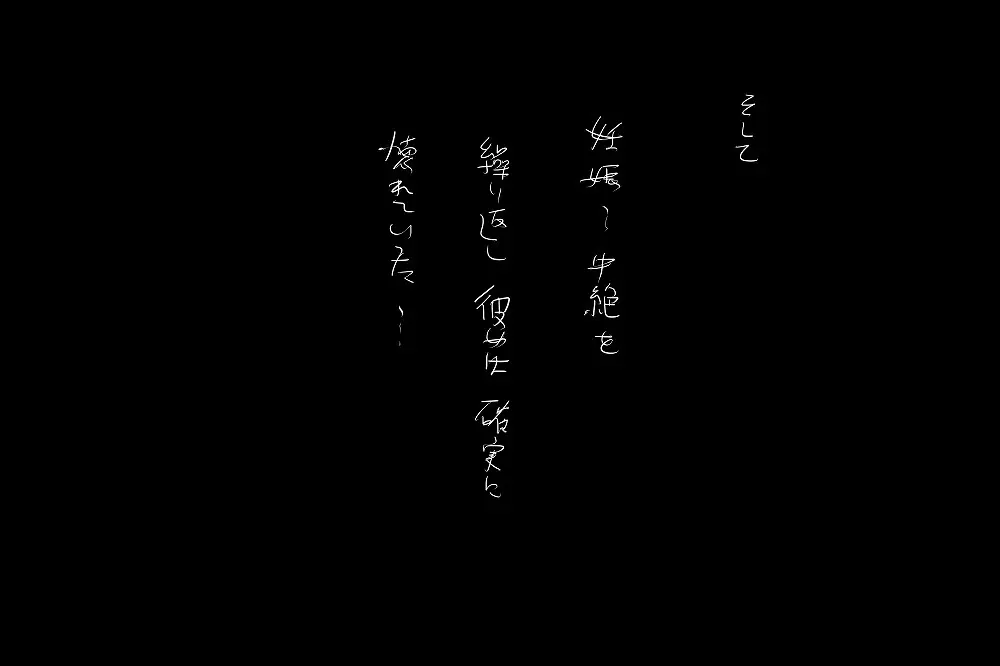 そして
妊娠〜中絶を
繰り返し 彼女は 確実に
壊れていった〜